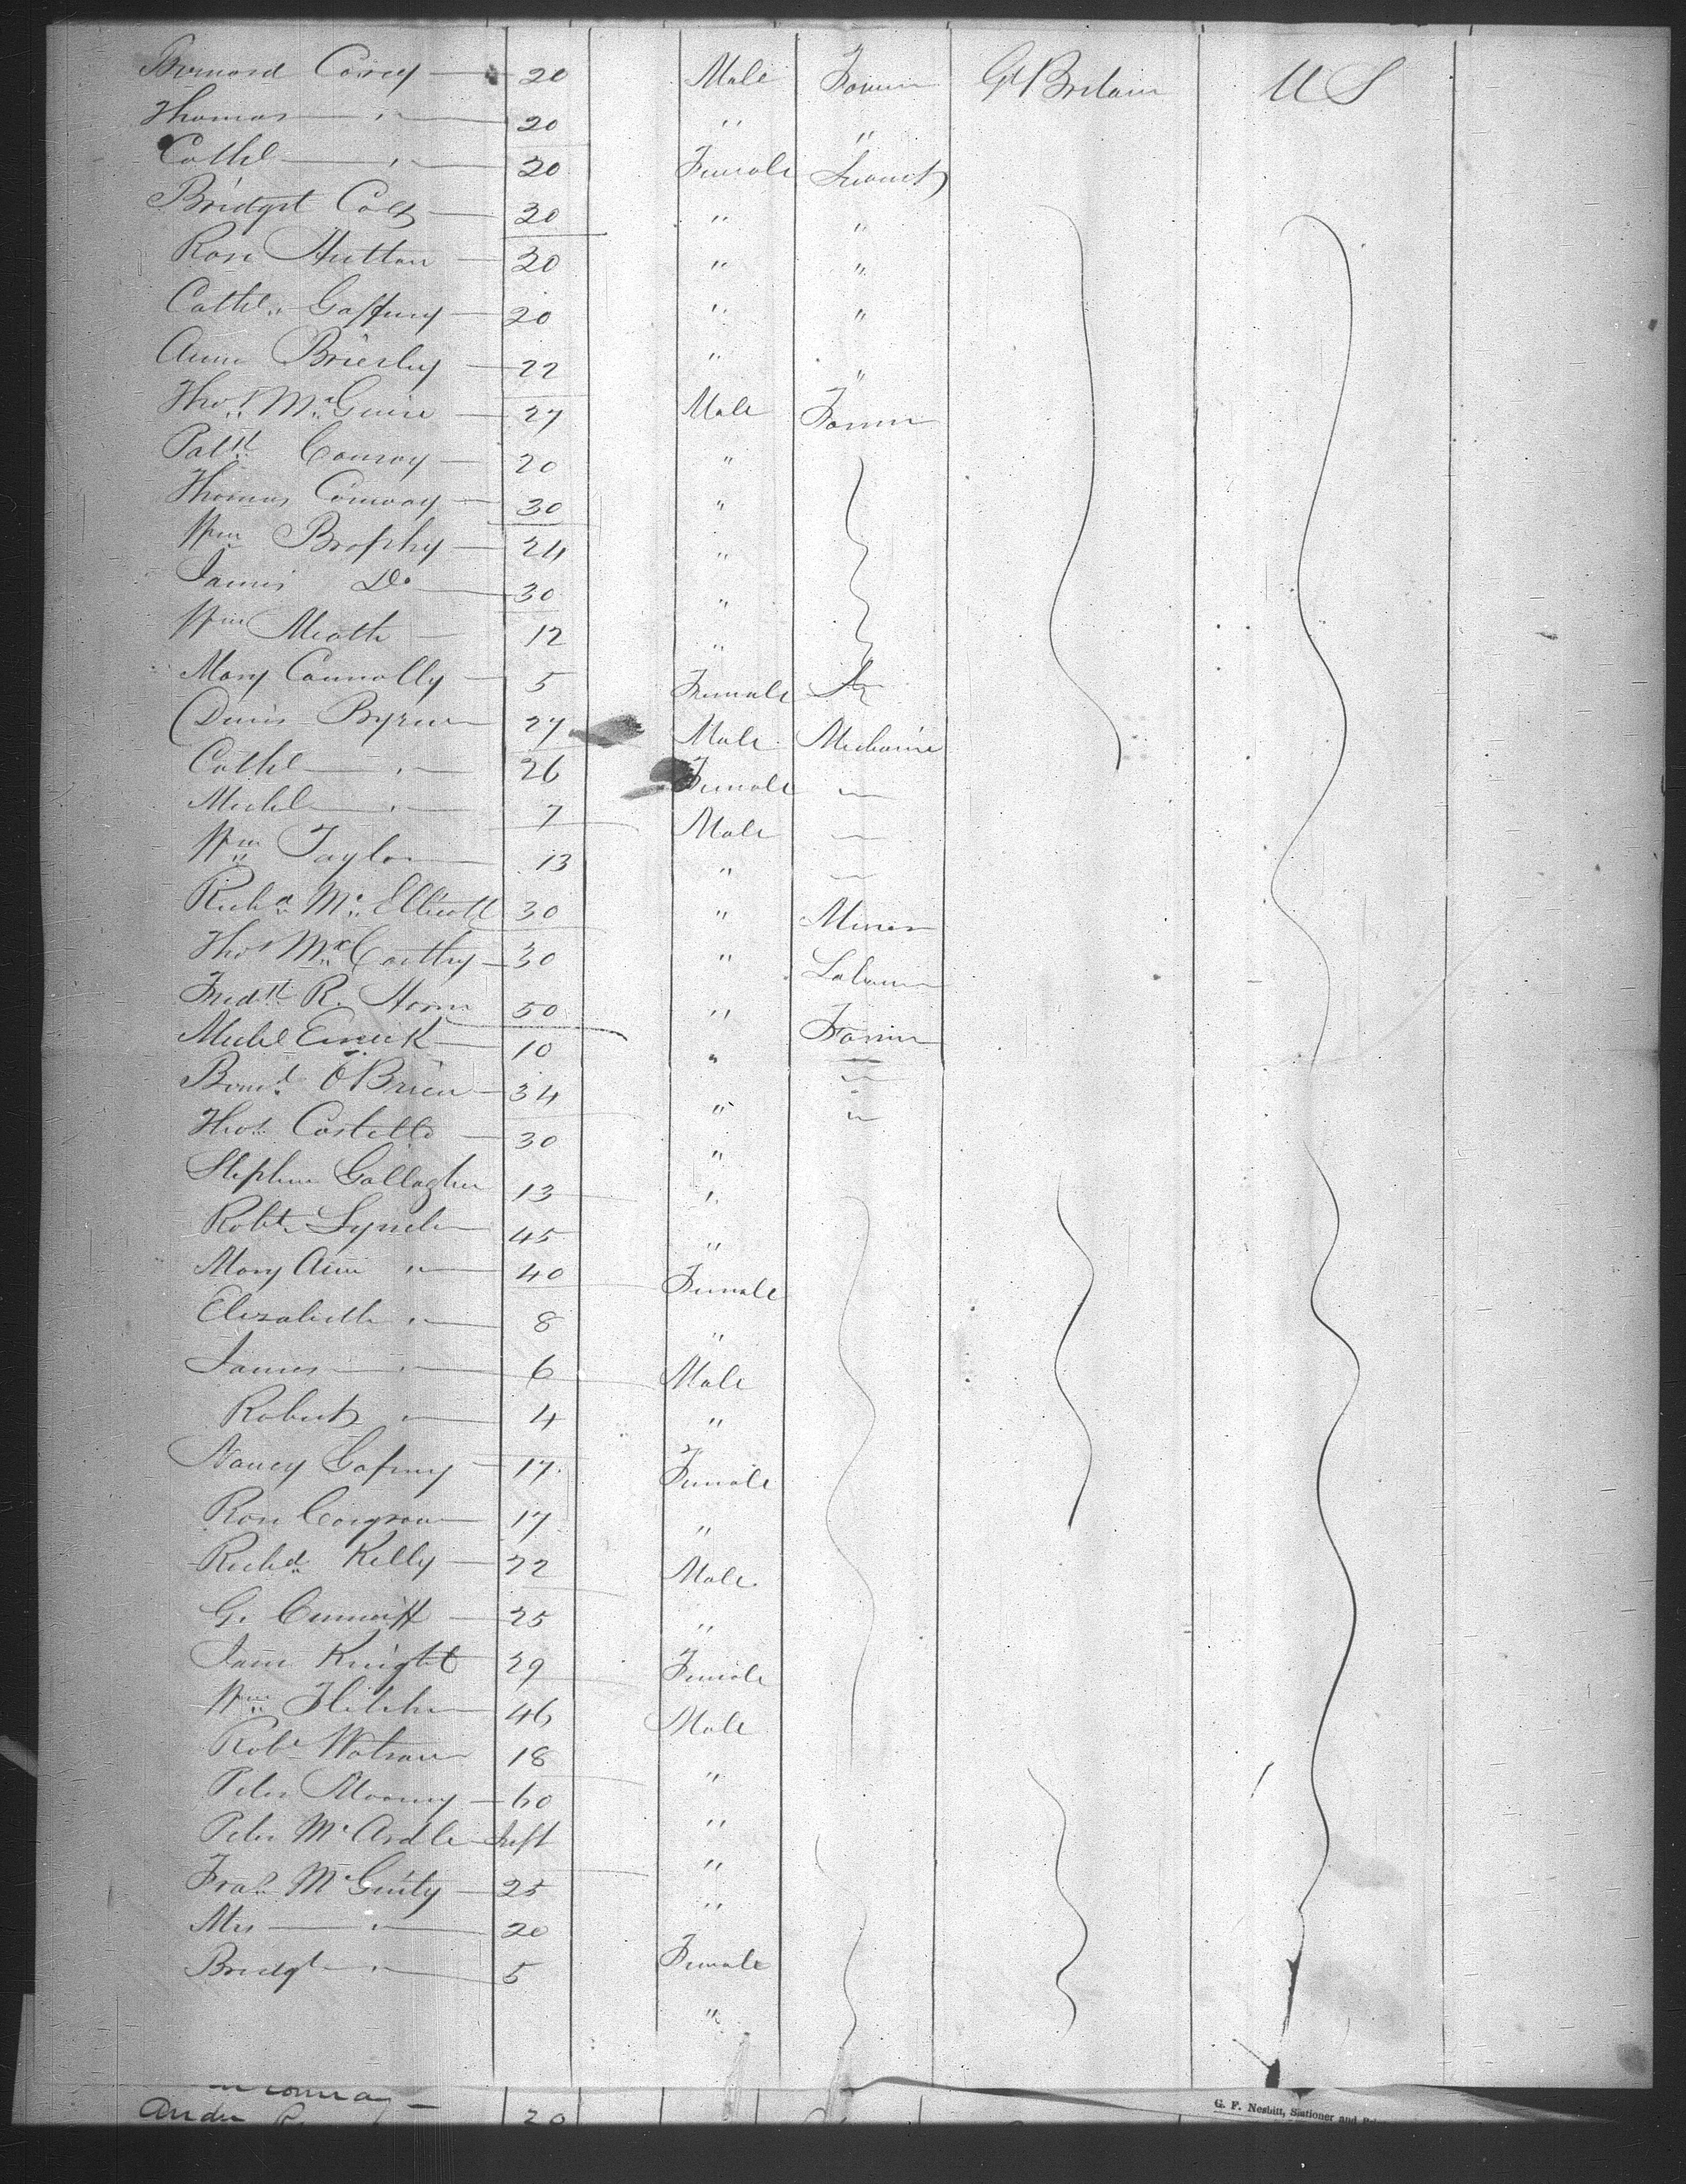 Bernard Corey 20 Male Farmer Gt Britain U S
Thomas " 20 " "
Cathe " 20 Female Servant
Bridget 30 " "
Rose Hutton 30 " "
Cathe Gaffney 20 " "
Ann Brierley 22 " "
Thos McGuire 27 Male Farmer
Patk Conroy 20 "
Thomas Conway 30 "
Wm Brophy 24 "
James Do 30 "
Wm Meath 12 "
Mary Connolly 5 Female
Denis Byrne 27 Male Mechanic
Cathe " 26 Female "
Michl " 7 Male "
Wm Taylor 13 " "
Richd Mc Ellicott 30 " Miner
Thos McCarthy 30 " Laborer
Fredk R. Horn 50 " Farmer
Michl 10 " "
Bernd O'Brien 34 " "
Thos Costello 30 "
Stephen Gallagher 13 "
Robt Lynch 45 "
Mary Ann " 40 Female
Elizabeth " 8 "
James " 6 Male
Robert " 4 "
Nancy Gafney 17 Female
Rose Cosgrove 17 "
Richd Kelly 22 Male
G. Cunniff 25 "
Jane Knight 29 Female
Wm 46 Male
Robt Watson 18 "
Peter Mooney 60 "
Peter McArdle "
Fras McGinty 25 "
Mrs " 20 Female
Bridgt " 5 "
20
G. F. Nesbitt, Stationer and